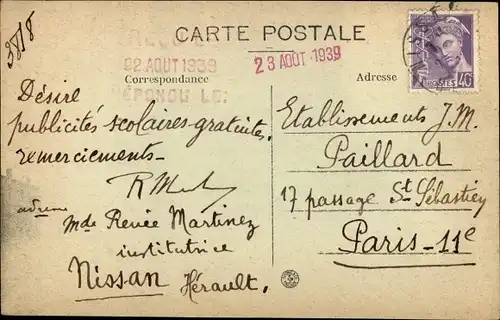 3818
CARTE POSTALE
REÇU LE
22 AOUT 1939
RÉPONDU LE:
23 AOUT 1939
Correspondance
Adresse
40
POSTES
Désire
publicités scolaires gratuites.
remerciements -
adresse
Mde Renée Martinez
institutrice
Nissan Hérault.
Etablissements J.M.
Paillard
17 passage St Sébastien
Paris - 11e